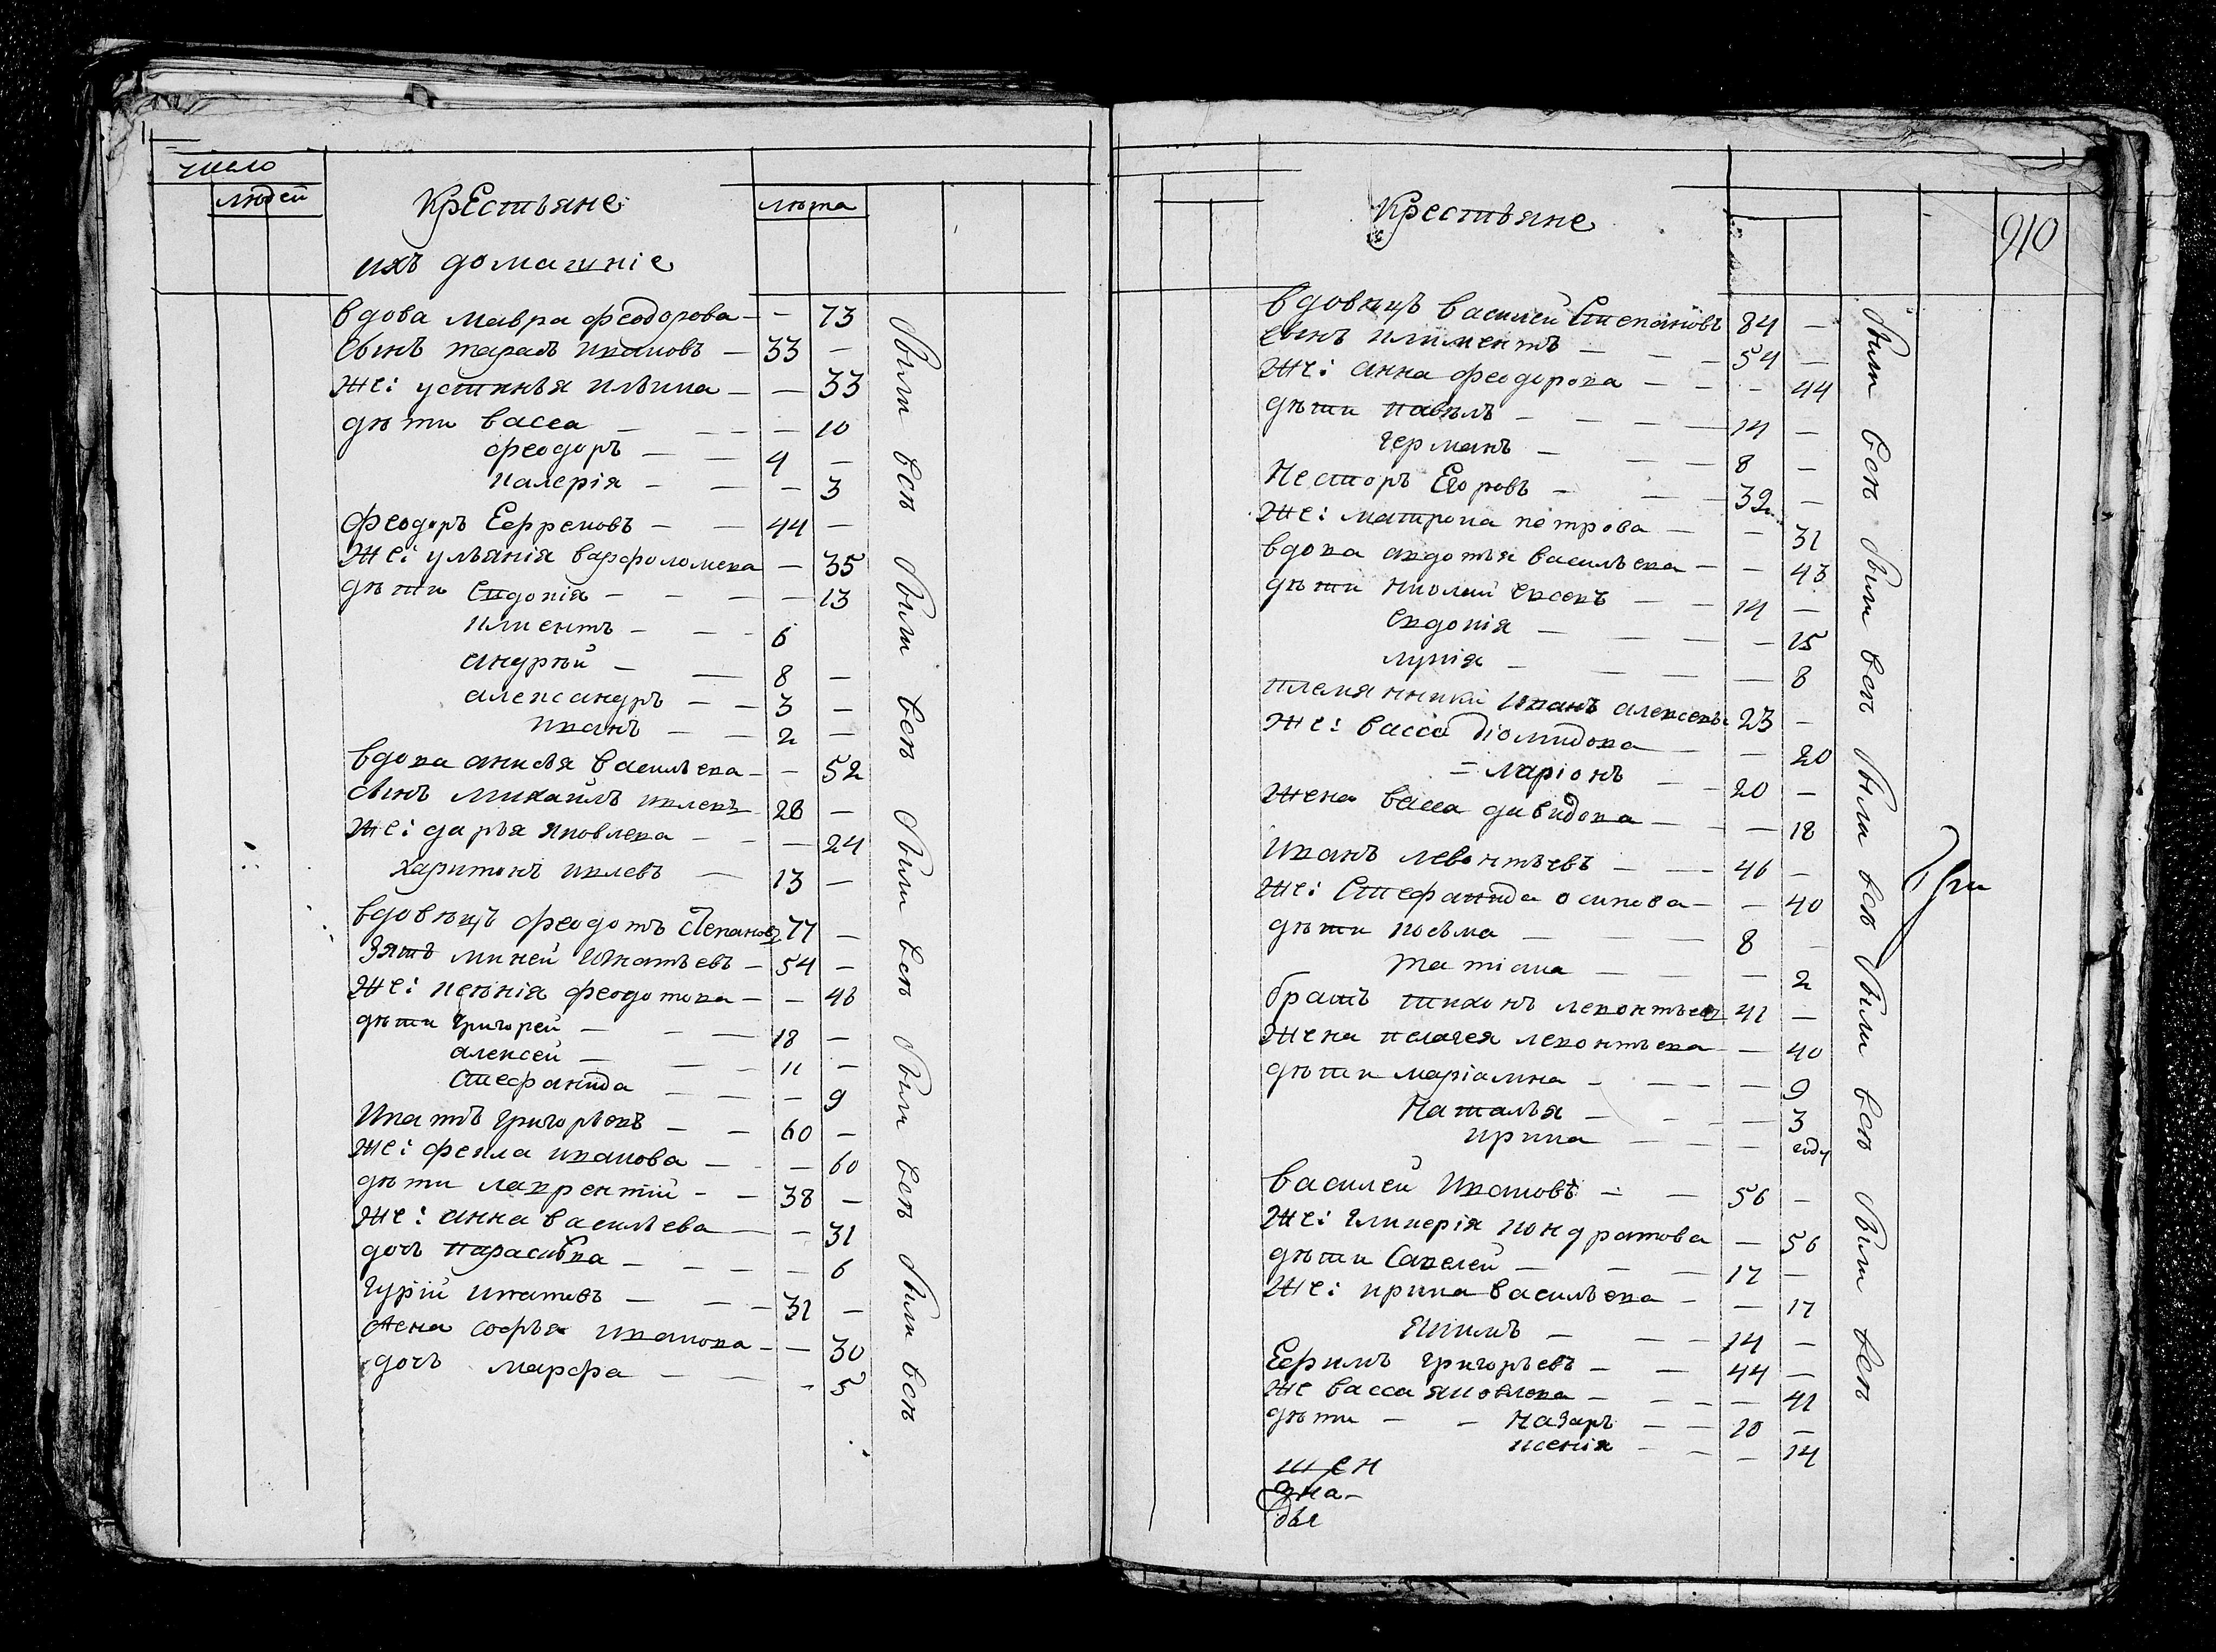 число
людей
КрЕстьяне
лѣта
ихъ домашніе
вдова мавра феодорова - - 73
Сынъ тарасъ ивановъ - 33 -
Же: устинья ильина - - 33
дѣти васса - - - - 10
феодоръ - - 4 -
калерія - - - 3
феодоръ Ефремовъ - - 44 -
Же: ульянія варфоломева - 35
дѣти Сидонія - - - - 13
климентъ - - - 6
андрѣй - - 8 -
александръ - - 3 -
иванъ - - 2 -
вдова анисья васильева - - 52
Сынъ михаилъ 28 -
Же: дарья яковлева - - - 24
харитонъ - 13 -
вдовецъ феодотъ Степановъ 77 -
Зять миней Игнатьевъ - 54 -
Же: ксѣнія феодотова - - 46
дѣти григорей - - - 18 -
алексей - - - 11 -
Стефанида - - - 9
Игнатъ григорьевъ - - 60 -
Же: фекла иванова - - - 60
дѣти лаврентій - - 38 -
Же: анна васильева - - 31
дочь - - - - 6
гурій игнатевъ - - - 31 -
Жена софья иванова - - 30
дочь марфа - - - 5
были всѣ были всѣ были всѣ были всѣ были всѣ
Крестьяне
910
вдовецъ василей Степановъ 84 -
сынъ климентъ - - - 54 -
Же: анна феодорова - - - 44
дѣти павелъ - - - - 14 -
германъ - - - 8 -
Несторъ Егоровъ - - - 32 -
Же: матрона петрова - - 31
вдова авдотья васильева - - 43
дѣти николай - - 14 -
Евдокія - - - - 15
лукія - - - - 8
племянники Иванъ алексевъ 23 -
Же: васса діомидова - - 20
= ларіонъ - - 20 -
Жена васса давидова - - - 18
Иванъ левонтьевъ - - - 46 -
Же: Стефанида осипова - - 40
дѣти косьма - - - 8 -
татіана - - - 2
братъ тихонъ левонтьевъ 41 -
Жена пелагея левонтьева - 40
дѣти маріамна - - - - 9
Наталья - - - - 3
ирина - - - году
василей Ивановъ - - 56 -
Же: гликерія кондратова - 56
дѣти Савелей - - - 17 -
Же: ирина васильева - - 17
Якимъ - - - 14 -
Ефимъ григорьевъ - - 44 -
Же васса яковлева - - - - 41
дѣти - - Назаръ - - 10 -
ксенія - - - 14
были всѣ были всѣ были всѣ были всѣ были всѣ